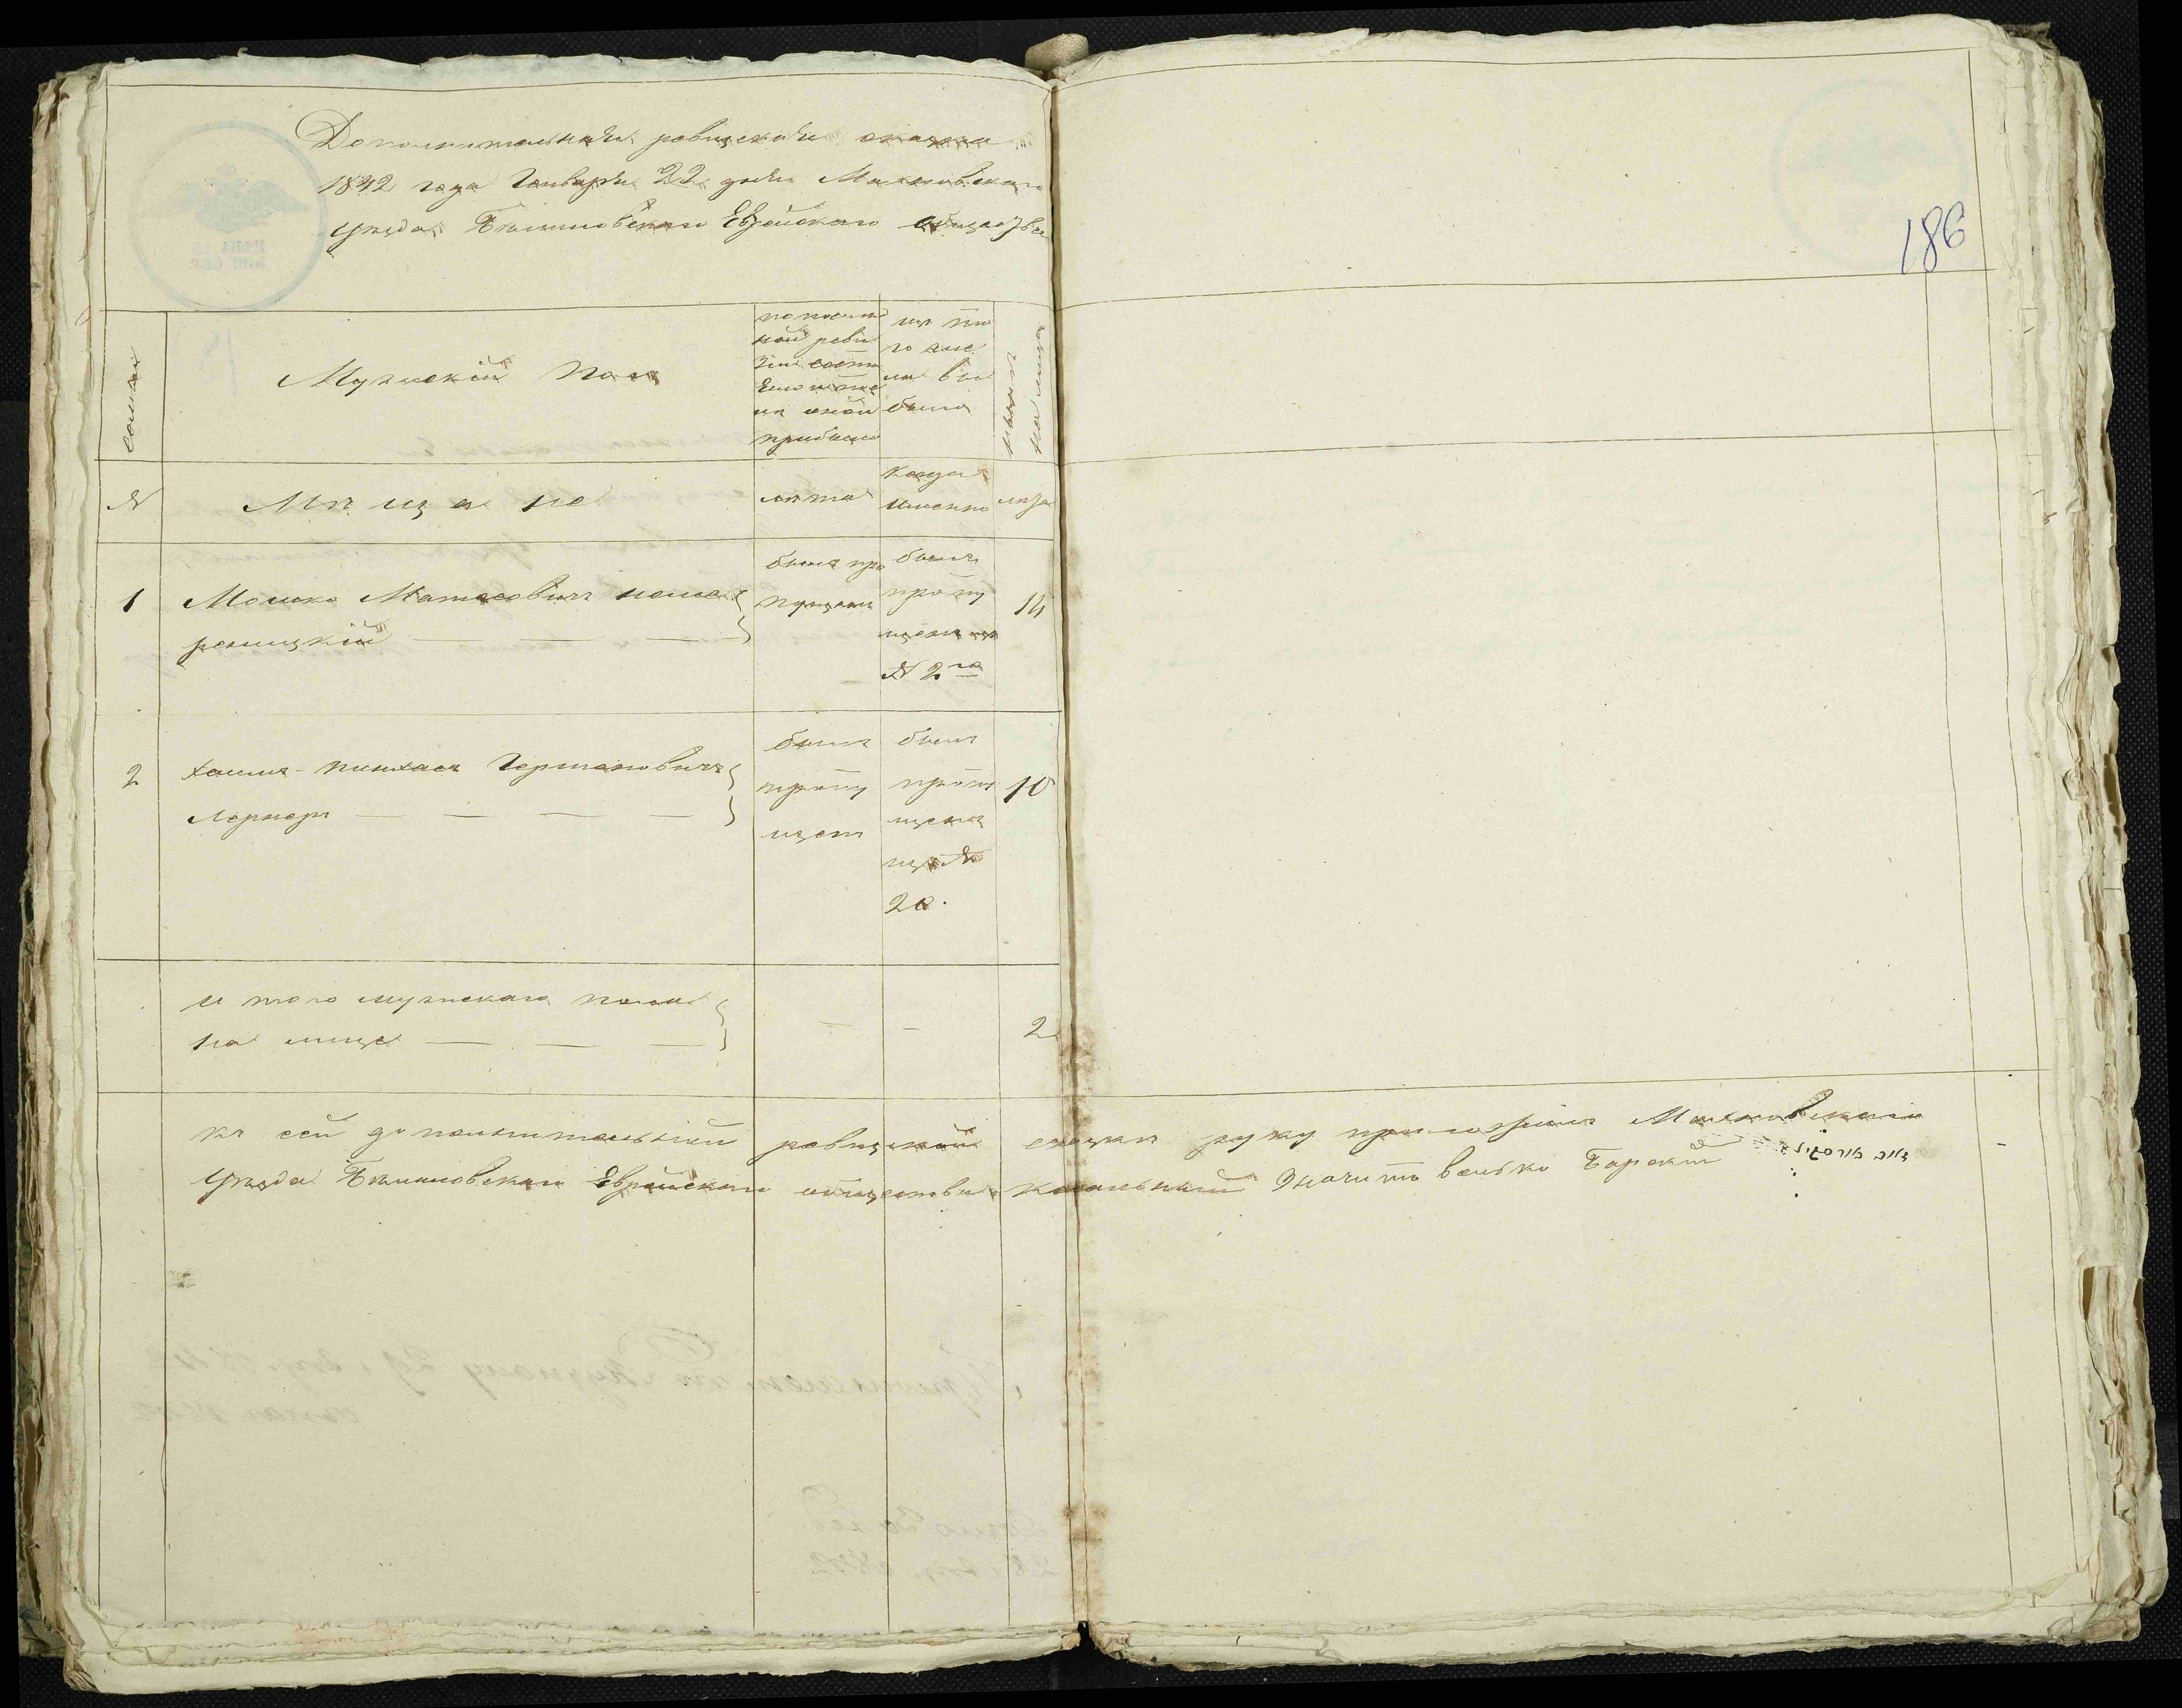 Дополнительная ревизская сказка
1842 года Генваря 22 дня Махновскаго
уезда Белиловскаго Еврейскаго общества
186
Семьи
Мужеский пол
по послед
ней реви
зии состо
яло и после
оной
прибыло
из то
го чис
ла вы
было
ныне
на лицо
№
Мещане
лета
когда
именно
лета
1
Мошко Матесович
был про
пущен
был
пропу
щен из
№ 2го
14
2
Хаим-Пинхас Германович
Лернер
был
пропу
щен
был
пропу
щен
из №
20.
10
И того мужескаго пола
на лице
2
К сей дополнительной ревизской сказки руку приложил Махновскаго
уезда Белиловскаго Еврейскаго общества кагальный